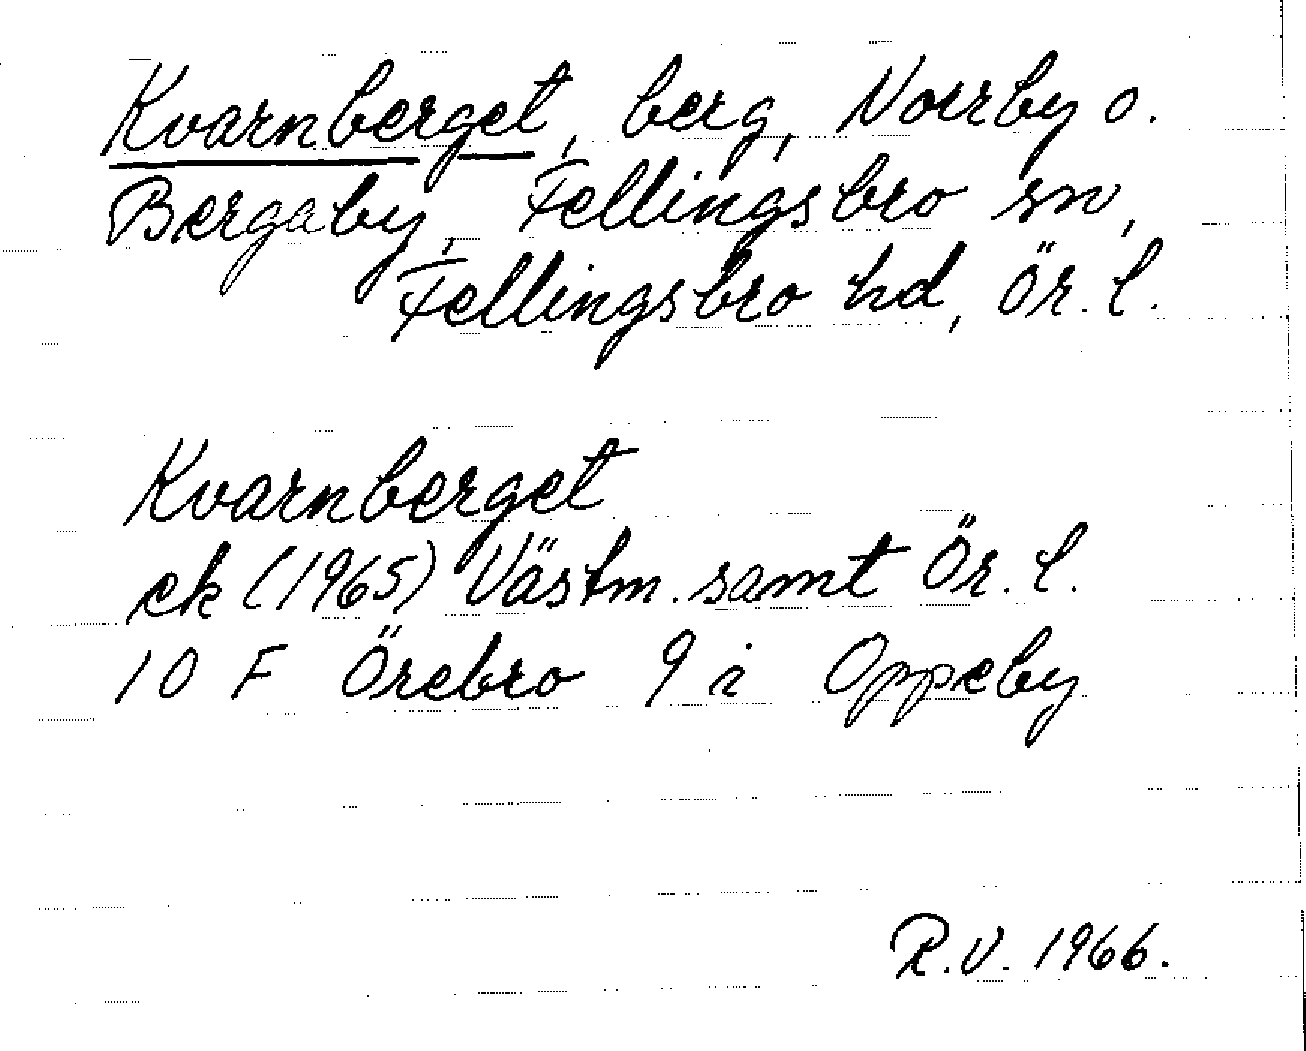 Kvarnberget, berg, Norrby o.
Bergaby, Fellingsbro sn,
Fellingsbro hd, Ör. l.
Kvarnberget
ek (1965) Västm. samt Ör. l.
10 F Örebro 9 i Oppeby
R.V. 1966.